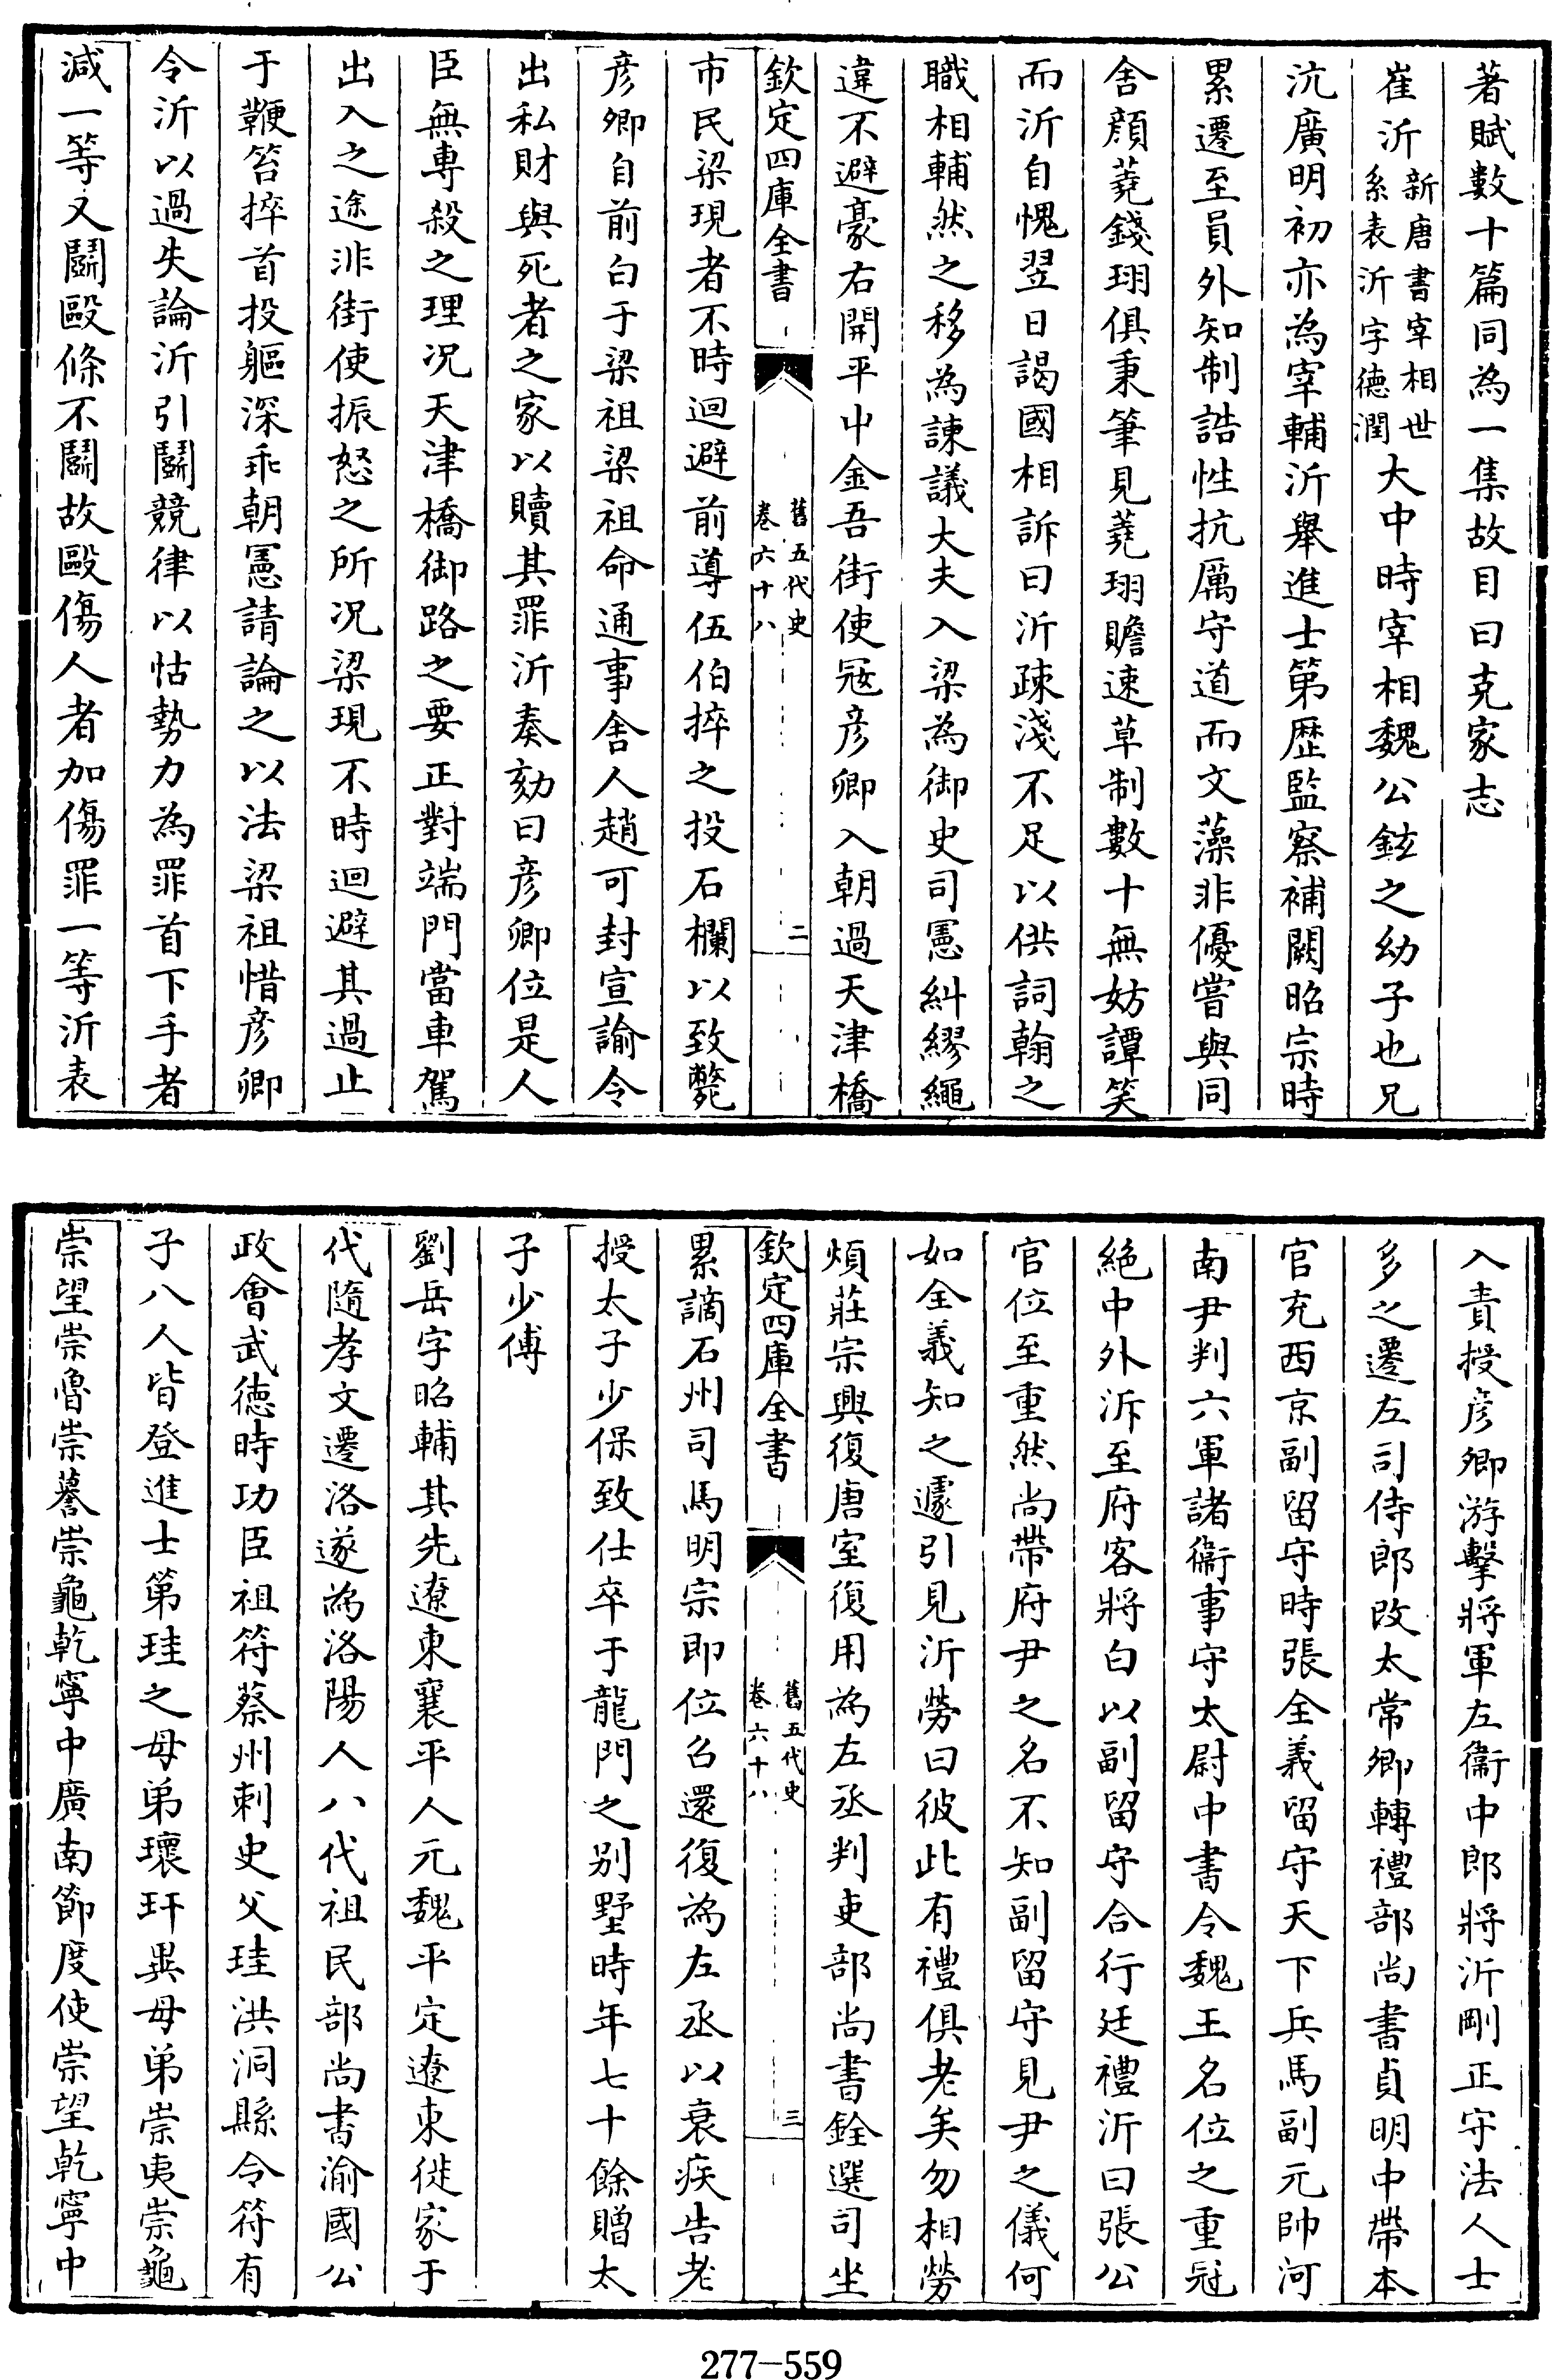 著賦數十篇同為一集故目曰克家志
崔沂新唐書宰相世系表沂字德潤大中時宰相魏公鉉之幼子也兄
沆廣明初亦為宰輔沂舉進士第歴監察補闕昭宗時
累遷至員外知制誥性抗厲守道而文藻非優嘗與同
舍顔蕘錢珝俱秉筆見蕘珝贍速草制數十無妨譚笑
而沂自愧翌日謁國相訴曰沂疎淺不足以供詞翰之
職相輔然之移為諫議大夫入梁為御史司憲糾繆繩
違不避豪右開平中金吾街使冦彦卿入朝過天津橋
欽定四庫全書
舊五代史
卷六十八
二
市民梁現者不時迴避前導伍伯捽之投石欄以致斃
彦卿自前白于梁祖梁祖命通事舎人趙可封宣諭令
出私財與死者之家以贖其罪沂奏劾曰彦卿位是人
臣無専殺之理况天津橋御路之要正對端門當車駕
出入之途非街使振怒之所况梁現不時迴避其過止
于鞭笞捽首投軀深乖朝憲請論之以法梁祖惜彦卿
令沂以過失論沂引鬭競律以怙勢力為罪首下手者
減一等又鬭毆條不鬭故毆傷人者加傷罪一等沂表
入責授彦卿游擊將軍左衞中郎將沂剛正守法人士
多之遷左司侍郎改太常卿轉禮部尚書貞明中帶本
官充西京副留守時張全義留守天下兵馬副元帥河
南尹判六軍諸衞事守太尉中書令魏王名位之重冠
絶中外沂至府客將白以副留守合行廷禮沂曰張公
官位至重然尚帶府尹之名不知副留守見尹之儀何
如全義知之遽引見沂勞曰彼此有禮俱老矣勿相勞
煩莊宗興復唐室復用為左丞判吏部尚書銓選司坐
欽定四庫全書
舊五代史
卷六十八
三
累謫石州司馬明宗即位召還復為左丞以衰疾告老
授太子少保致仕卒于龍門之别墅時年七十餘贈太
子少傅
劉岳字昭輔其先遼東襄平人元魏平定遼東徙家于
代隨孝文遷洛遂為洛陽人八代祖民部尚書渝國公
政會武德時功臣祖符蔡州刺史父珪洪洞縣令符有
子八人皆登進士第珪之母弟瓌玕異母弟崇夷崇龜
崇望崇魯崇謩崇龜乾寧中廣南節度使崇望乾寧中
277-559